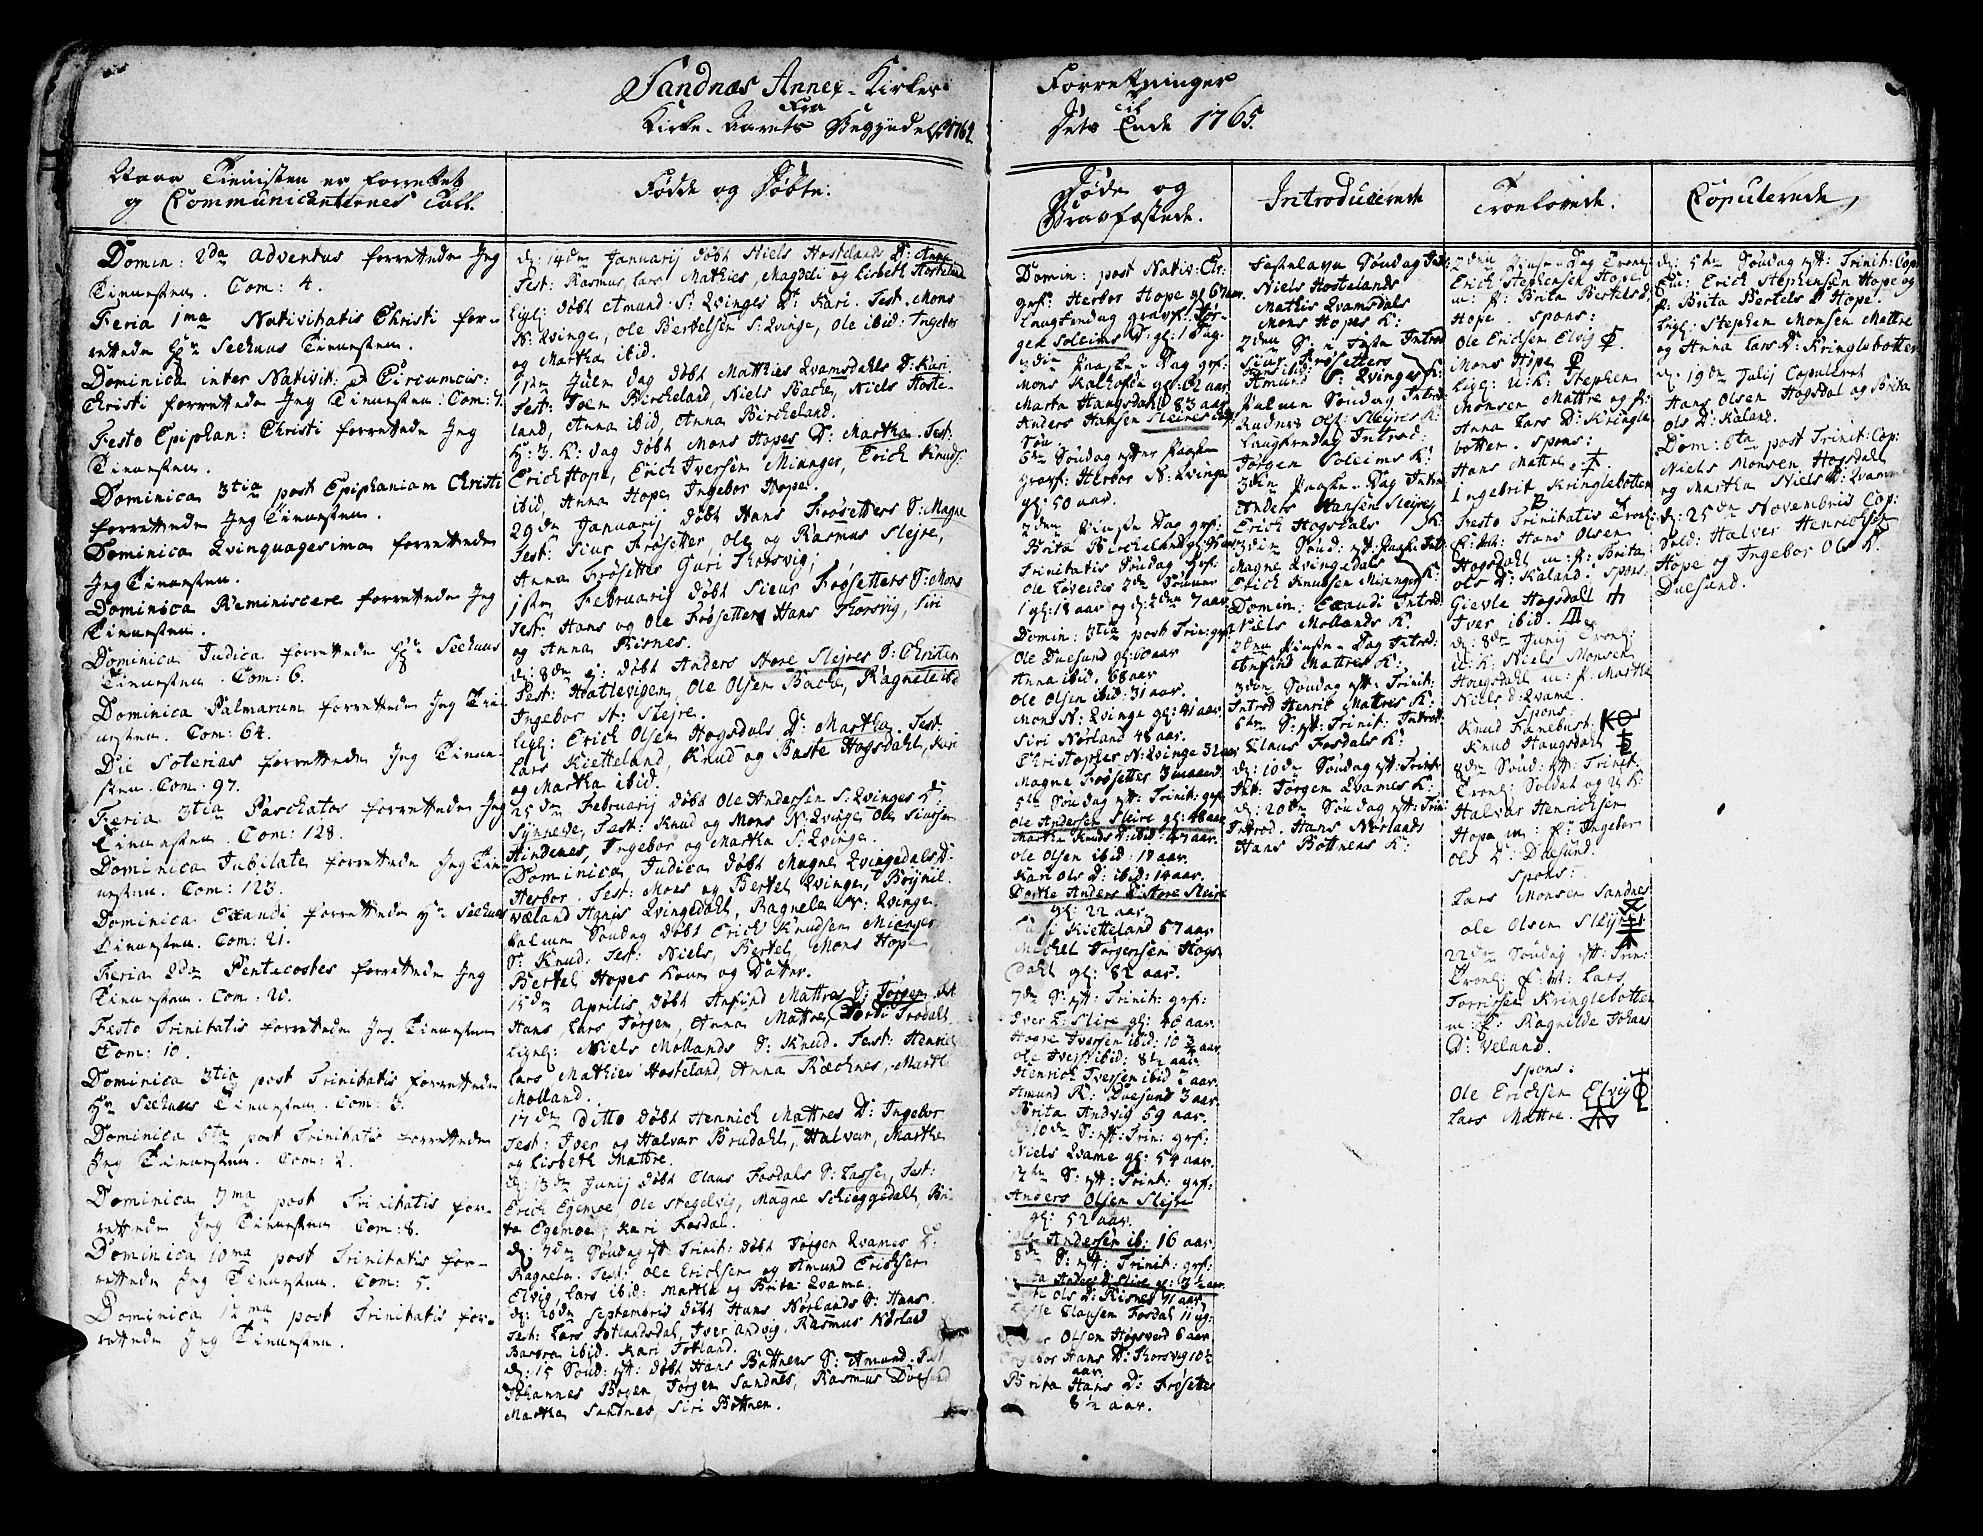 Sandnæs Annex-Kirkes Forretninger
Fra
til
Kirke-Aarets Begyndelse 1764
Dets Ende 1765.
Naar Tienisten er forrettet
og Communicanternes Tall.
Domin: 2da Adventus forrettede Jeg
Tienesten. Com: 4.
Feria 1ma Nativitatis Christi for-
rettede Hr Seehuus Tienesten.
Dominica inter Nativit: & Circumcis:
Christi forrettede Jeg Tienesten. Com: 7.
Festo Epiphan: Christi forrettede Jeg
Tienesten.
Dominica 3tia post Epiphaniam Christi
forrettede Jeg Tienesten.
Dominica Qvinquagesima forrettede
Jeg Tienesten.
Dominica Reminiscere forrettede Jeg
Tienesten.
Dominica Judica forrettede Hr Seehuus
Tienesten. Com: 6.
Dominica Palmarum forrettede Jeg Tie-
nesten. Com: 64.
Die Soterias forrettede Jeg Tiene-
sten. Com: 97.
Feria 3tia Paschatos forrettede Jeg
Tienesten. Com: 128.
Dominica Jubilate forrettede Jeg Tie-
nesten. Com: 123.
Dominica Exaudi forrettede Hr Seehuus
Tienesten. Com: 21.
Feria 2da Pentecostes forrettede Jeg
Tienesten. Com: 20.
Festo Trinitatis forrettede Jeg Tienesten
Com: 10.
Dominica 3tia post Trinitatis forrettede
Hr Seehuus Tienesten. Com: 3.
Dominica 5ta post Trinitatis forrettede
Jeg Tienesten. Com: 2.
Dominica 7ma post Trinitatis for-
rettede Jeg Tienesten Com: 8.
Dominica 10ma post Trinitatis for-
rettede Jeg Tienesten. Com: 5.
Dominica 12ma post Trinitatis for-
rettede Jeg Tienesten.
Fødde og Døbte:
d: 14de Januarij døbt Niels Hostelands D: Anne
Test: Rasmus, Lars Mathies, Magdeli og Lisbeth Hosteland
ligl: døbt Amund S: Qvinges D: Kari. Test. Mons
N: Qvinge, Ole Bertelsen S: Qvinge, Ole ibid: Ingebor
og Martha ibid.
1ste Jule Dag døbt Matthies Qvamsdahls D: Kari
Test: Joen Birkeland, Niels Backe, Niels Hoste-
land, Anna ibid, Anna Birkeland.
H: 3. K: Dag døbt Mons Hopes D: Martha. Test.
Erich Hope, Erich Iversen Mianger, Erich Knuds:
ibid, Anna Hope, Ingebor Hope.
29de Januarij døbt Hans Frøsetters S: Magne
Test: Siur Frøsetter, Ole og Rasmus Slejre,
Anna Frøsetter Guri Thorsvig,
1ste Februarij døbt Sieur Frøsetters S: Mons
Test: Hans og Ole Frøsetter Hans Thorsvig, Siri
og Anna Risnes.
d: 8de ej: døbt Anders Store Slejres S: Christen
Test: Hatlevigen, Ole Olsen Backe, Ragnele ibid
Ingebor N: Slejre.
ligl: Erich Olsen Hogsdals D: Martha. Test.
Lars Kietteland, Knud og Baste Hogsdahl, Kari
og Martha ibid.
25de Februarij døbt Ole Andersen S: Qvinges D:
Synneve, Test: Knud og Mons N: Qvinge, Ole Siursen
Hindenes, Ingebor og Martha S: Qvinge.
Dominica Judica døbt Magne Qvingedals D:
Herbor. Test: Mons og Bertel Qvinge, Brynil-
væland Agnis Qvingedahl, Ragnele N: Qvinge.
Palme Søndag døbt Erich Knudsen Mianger
S: Knud. Test: Niels, Bertel, Mons Hope
Bertel Hopes Kone og Datter.
15de Aprilis døbt Anfind Mattres S: Jørgen, Test
Hans, Lars Jørgen, Anna Mattre, Dorti Frodahl
Ligel: Niels Mollands S: Knud. Test: Henrich
Lars Mathies Hosteland, Anna Røchnes, Martha
Molland.
17de Ditto døbt Hennich Mattres D: Ingebor
Test: Iver og Halvar Brudahl, Halvar, Martha
og Lisbeth Mattre.
d: 13de Junij døbt Claus Fosdals S: Lasse, Test:
Erich Egemoe, Ole Stegelvig, Magne Schieggedahl, Bri-
ta Egemoe, Kari Fosdal.
d: 7de Søndag eft: Trinit: døbt Jørgen Qvames D:
Ragnela. Test: Ole Erichsen og Amund Erichsen
Elvig, Lars ibid: Martha og Brita Qvame.
d: 20de Septembris døbt Hans Nørlands S: Hans.
Test: Lars Totlandsdal, Iver Andvig, Rasmus Nørland
Barbra ibid. Kari Totland.
d: 15 Sønd: eft: døbt Hans Bøttnens S: Amund. Test
Johannes Bogen, Jørgen Sandnes, Rasmus Duesund
Martha Sandnes, Siri Bøttnen.
Døde og
Gravfæstede.
Domin: post Nativ: Chr:
grf: Herbor Hope gl 67 aar.
Langfredag gravf: Jør-
gen Soleims D: gl: 1 Dag.
3die Paaske-Dag grf:
Mons Kalhofde gl: 62 aar
Marta Haugsdahl 83 aar
Anders Hansen Sleires
Søn.
6te Søndag efter Paaske
gravf: Herbor N: Qvinge
gl: 50 aar.
2den Pintze Dag grf:
Brita Birkeland
Trinitatis Søndag grf:
Ole Løveides 2de Sønner
1 gl: 18 aar og d: 2den 7 aar
Domin: 3tia post Trin: grf:
Ole Duesund gl: 60 aar
Anna ibid. 68 aar
Ole Olsen ibid: 31 aar.
Mons N: Qvinge gl: 41 aar
Siri Nørland 48 aar.
Christopher N: Qvinge 32 aar
Magne Frøsetter 3 maaned:
5te Søndag eft: Trinit: grf:
Ole Andersen Sleire gl: 48 aar
Martha Knuds D: ibid: 47 aar.
Ole Olsen ibid: 18 aar.
Kari Ols D: ibid: 14 aar.
Dorthe Anders D: Store Sleire
gl: 22 aar.
Kietteland 67 aar
Michel Jørgensen Hogs-
dahl gl: 82 aar.
7de S: eft: Trinit: grf:
Iver L: Slire gl: 46 aar.
Iversen ibid: 10 3/4
aar
Ole Ivers: ibid: 8 1/2 aar
Henrich Iversen ibid 7 aar.
Amund R: Duesund 3 aar.
Brita Andvig 59 aar.
d: 10de S: eft: Trin: grf:
Niels Qvame gl: 54 aar.
12te S: eft: Trinit: grf:
Anders Olsen Slejre
gl: 52 aar.
Andersen ib: 16 aar.
S: eft: Trinit: grf:
Anders D: Slire gl: 3 1/2 aar
Ols D: Risnes 71 aar
Lasse Clausen Fosdal 11 ug:
Olsen Høgsverd 6 aar.
Ingebor Hans D: Thorsvig 10 1/2
aar.
Brita Hans D: Frøsetter
8 1/2 aar.
Introducerede
Fastelavn Søndag Intr:
Niels Hostelands
Mathis Qvamsdals
Mons Hopes K:
2den S: i Faste Introd
Siur Frøsetters
Hans ibid: K:
Amund S: Qvinges K:
Palme Søndag Introd:
Anders Ols: Slejres K:
Langfredag Introd:
Jørgen Soleims K:
3die Paaske-Dag Intr:
Anders Hansen Slejre
Erich Hogsdals K:
3die Sønd: eft: Paask: Intr:
Magne Qvingedals
Erich Knudsen Mianger K:
Domin: Exaudi Introd:
Niels Mollands K:
2den Pintze-Dag Introd:
Anfind Mattres K:
3die Søndag eft: Trinit:
Introd Henrik Mattres K:
6te S: eft: Trinit: Introd:
Claus Fosdals K:
d: 10de Søndag eft: Trinit:
Int: Jørgen Qvames K:
d: 20de Søndag eft: Trin:
Introd. Hans Nørlands
Hans Bøttnens K:
Troelovede.
2den Pintze-Dag Troel:
Erich Stephensen Hope
m: P: Brita Bertels D.
Hope. Spons:
Ole Erichsen Elvig
Mons Hope
Ligl: U: K: Stephen
Monsen Mattre og P:
Anna Lars D: Kringle
botten. Spons:
Hans Mattre
Ingebrit Kringlebotten
B
Festo Trinitatis Troel:
E: M: Hans Olsen
Hogsdahl m: P: Brita
Ols D: Kaland. Spons:
Gievle Hogsdahl
Iver ibid.
d: 8de Junij Troel:
U: K: Niels Monsen
Hougsdahl m: P: Martha
Niels D: Qvame.
Spons.
Knud Fanebust. K
Knud Haugsdahl
8de Sønd: eft: Trinit:
Troel: Soldat og U: K:
Halvar Henrichsen
Hope m: P: Ingebor
Ols D: Duesund.
Spons:
Lars Monsen Sandnes
Ole Olsen Sleij
22de Søndag eft: Trin:
Troel: E: M: Lars
Torrissen Kringlebotten
m: P: Ragnilde Johans
D: Veland.
Spons:
Ole Erichsen Elvig
Lars Mattre.
Copulerede
d: 5te Søndag eft: Trinit: Cop:
Erich Stephensen Hope og
P. Brita Bertels D Hope.
Ligl: Stephen Monsen Mattre
og Anna Lars D: Kringlebotten
d: 19de Julij Copuleret
Hans Olsen Hogsdal og Brita
Ols D: Kaland.
Dom: 6ta post Trinit: Cop:
Niels Monsen Hogsdahl
og Martha Niels D: Qvame
d: 25de Novembris Cop:
Sold: Halver Henrichsen
Hope og Ingebor Ols D:
Duesund.